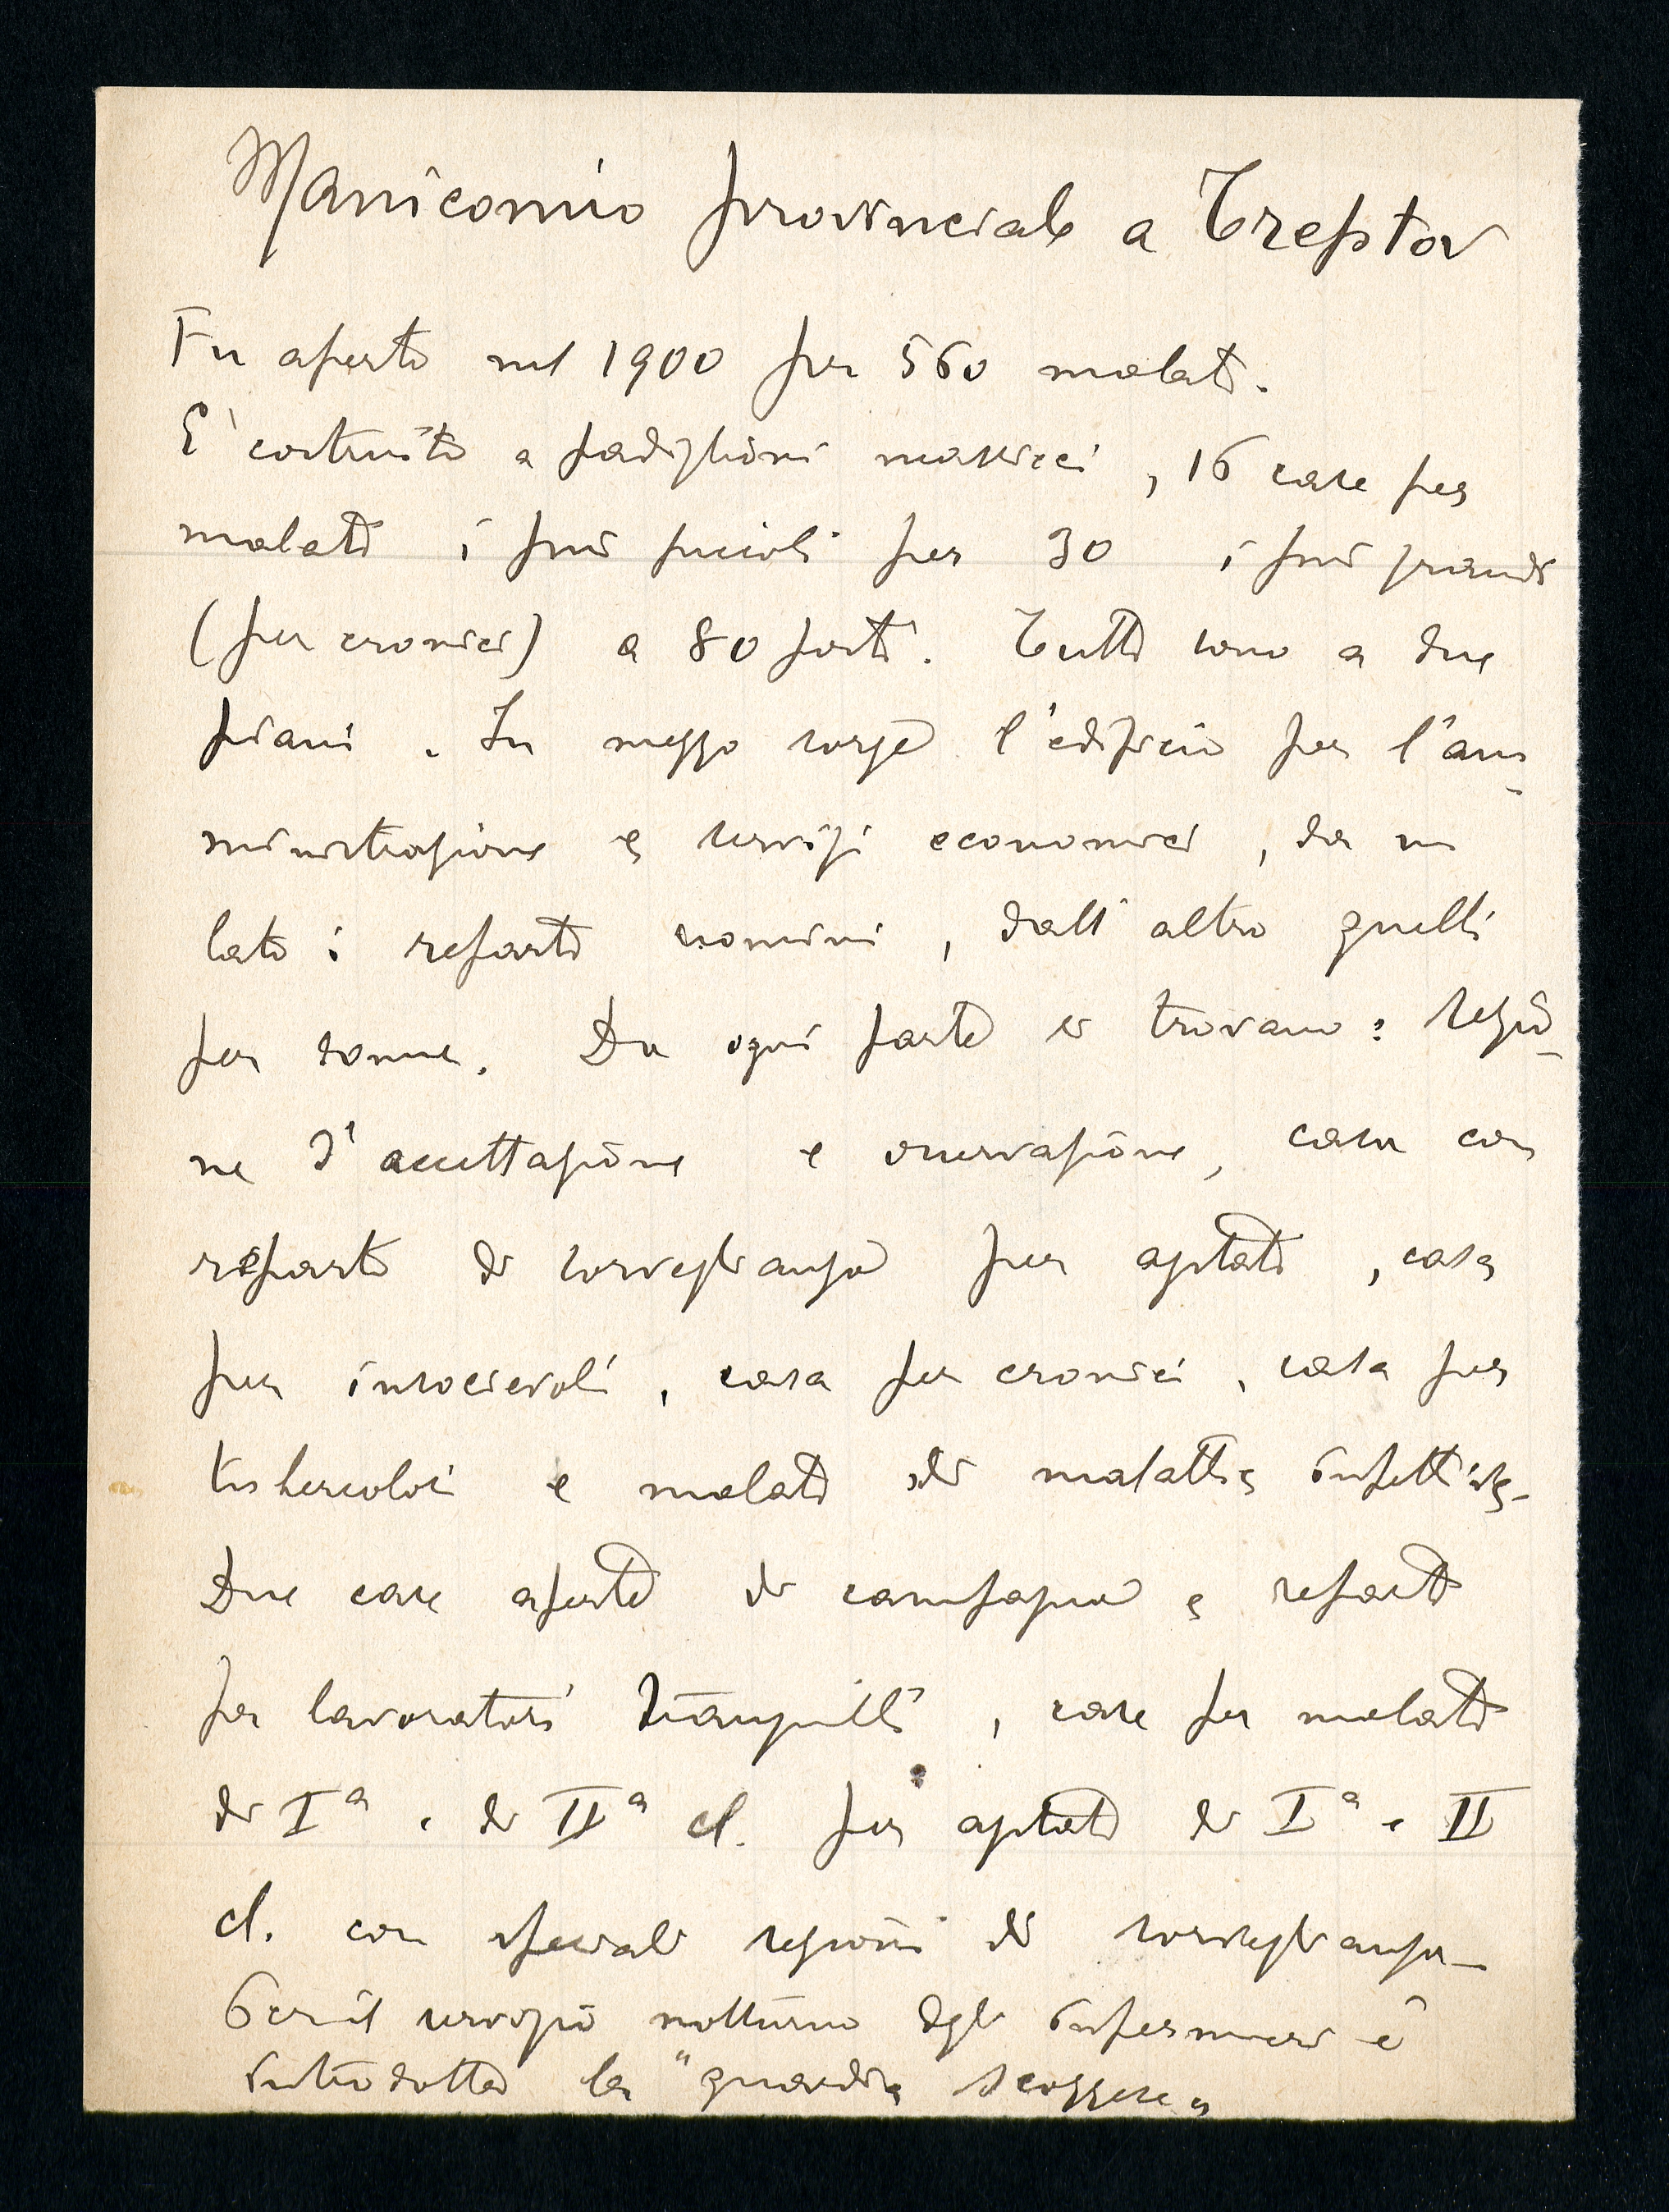 Manicomio provinciale a Treptow
Fu aperto nel 1900 per 560 malati.
E' costruito a padiglioni massicci, 16 case per
malati i più piccoli per 30 i più grandi
(per cronici) a 80 posti. Tutti sono a due
piani. In mezzo sorge l'edificio per l'am-
ministrazione e servizi economici, da un
lato i reparti uomini, dall'altro quelli
per donne. Da ogni parte si trovano: sezio-
ne d'accettazione e osservazione, casa con
reparto di sorveglianza per agitati, casa
per insocievoli, casa per cronici, casa per
tubercolosi e malati di malattie infettive.
Due case aperte di campagna e reparti
per lavoratori tranquilli, case per malati
di Iª e di IIª cl. per agitati di Iª e II
cl. con speciali sezioni di sorveglianza.
Per il servizio notturno degli infermieri è
introdotta la "guardia scozzese"